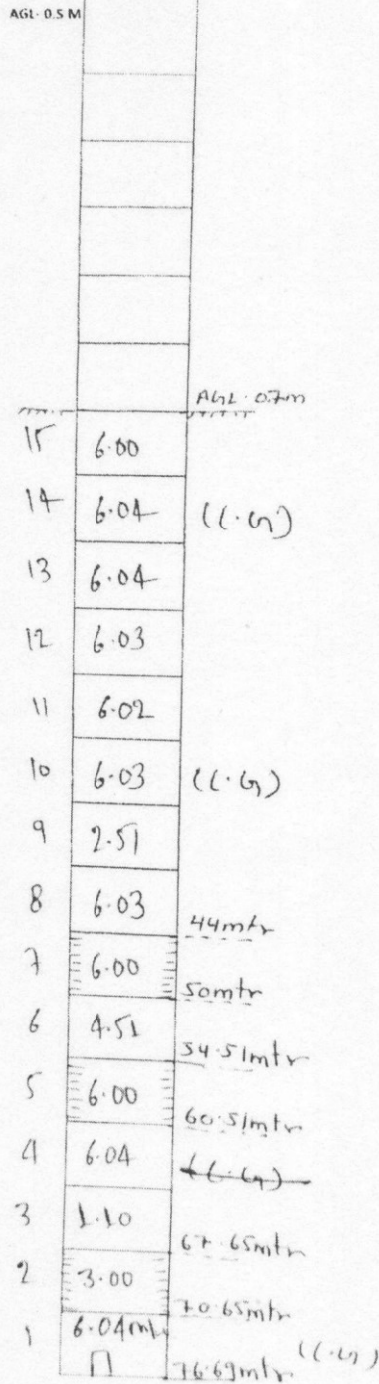 AGL- 0.5 M
AGL. 0.7m
15 6.00
14 6.04 (C.G)
13 6.04
12 6.03
11 6.02
10 6.03 (C.G)
9 2.51
8 6.03
44mtr
7 6.00
50mtr
6 4.51
54.51mtr
5 6.00
60.51mtr
4 6.04 (C.G)
3 1.10
67.65mtr
2 3.00
70.65mtr
1 6.04mtr
76.69mtr (C.G)